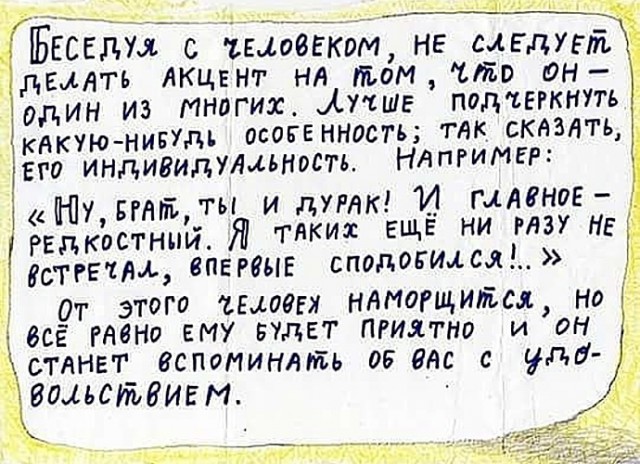 Беседуя с человеком, не следует
делать акцент на том, что он –
один из многих. Лучше подчеркнуть
какую-нибудь особенность; так сказать,
его индивидуальность. Например:
« Ну, брат, ты и дурак! И главное –
редкостный. Я таких ещё ни разу не
встречал, впервые сподобился!.. »
От этого человек наморщится, но
всё равно ему будет приятно и он
станет вспоминать об вас с удо-
вольствием.